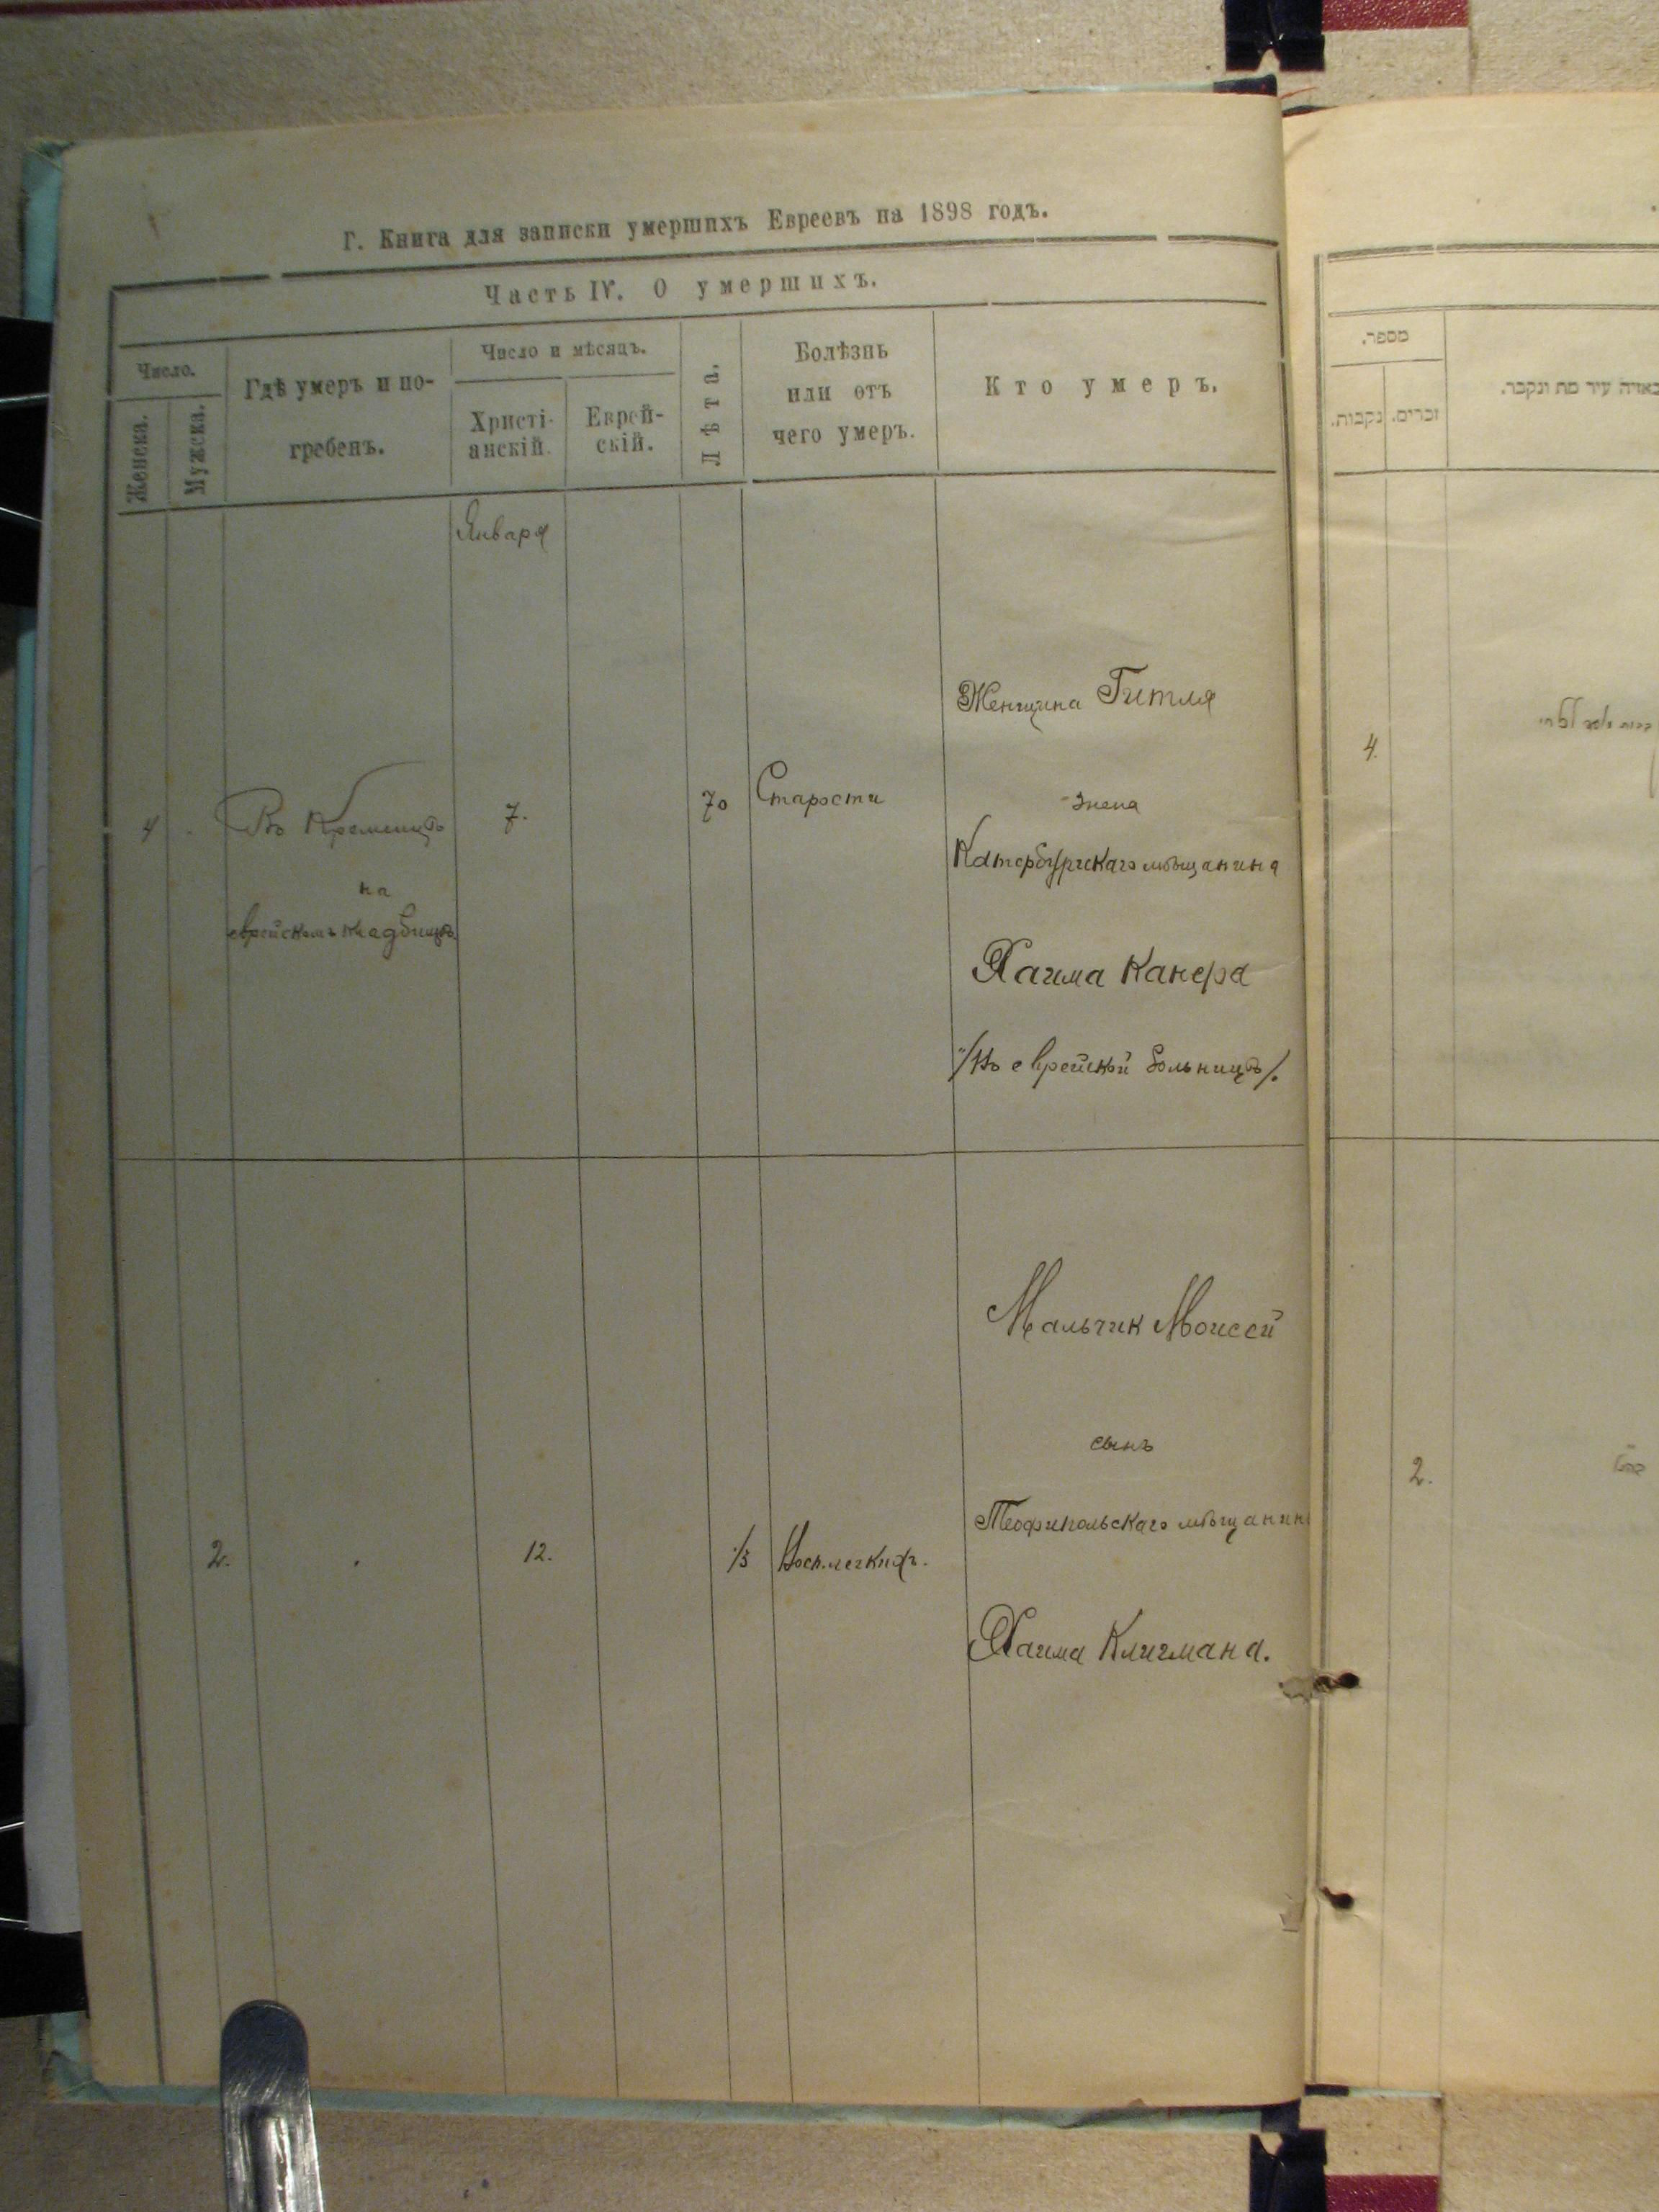 Г. Книга для записки умершихъ Евреевъ на 1898 годъ.
Часть IV. О умершихъ.
Число.
Женска.
Мужска.
Гдѣ умеръ и по-
гребенъ.
Число и мѣсяцъ.
Христі-
анскій.
Еврей-
скій.
Лѣта.
Болѣзнь
или отъ
чего умеръ.
Кто умеръ.
Января
4
Въ Кременцѣ
на
еврейскомъ кладбищѣ
7.
70
Старости
Женщина Гитля
жена
Катербургскаго мѣщанина
Хаима Канера
/Въ еврейской больницѣ/.
2.
12.
1/3
Восп. легкихъ.
Мальчик Моисей
сынъ
Теофипольскаго мѣщанин
Хаима Клигмана.
מספר.
נקבות.
זכרים.
באיזה עיר מת ונקבר.
4.
2.